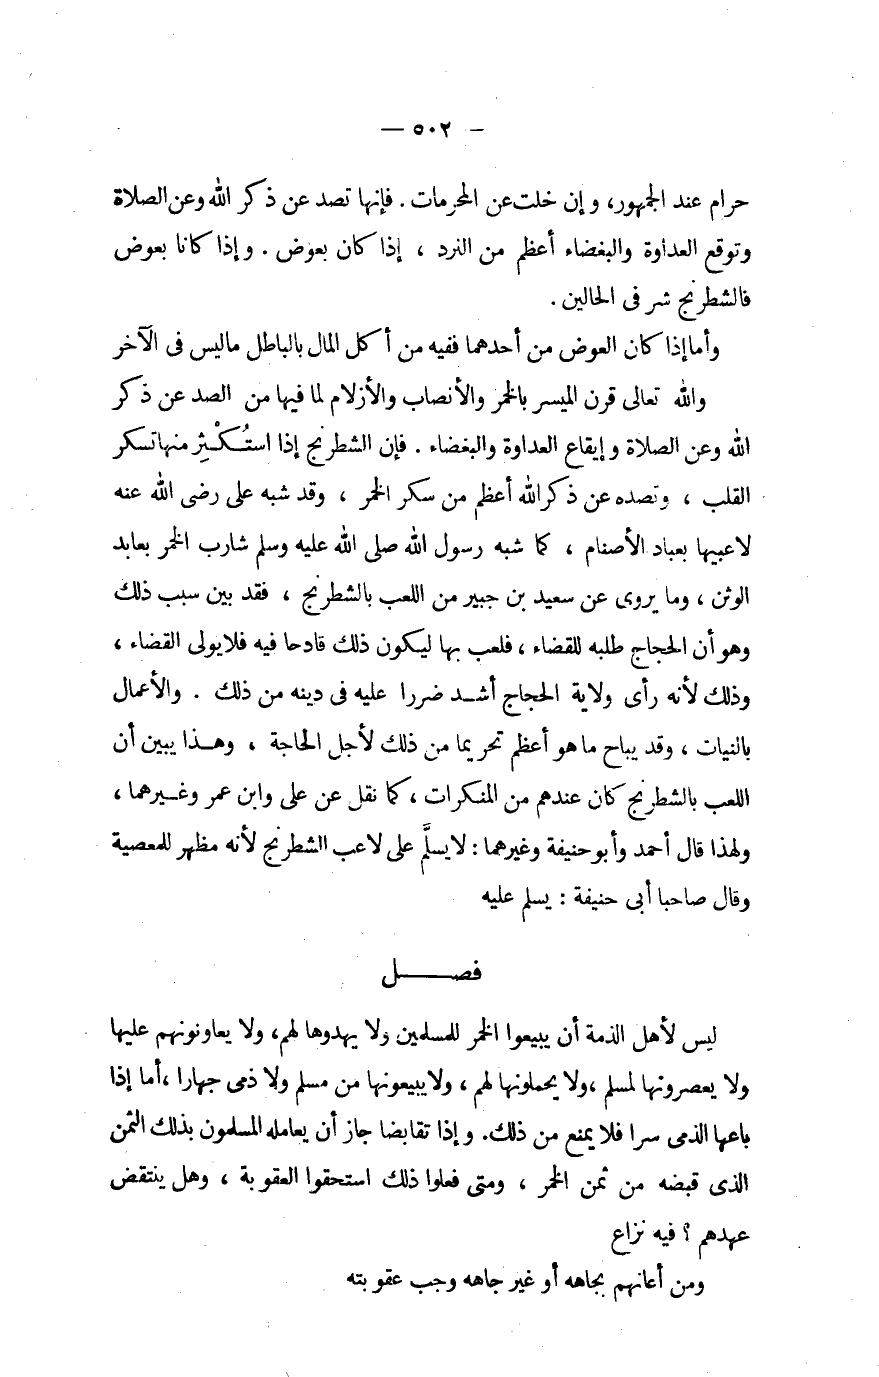 — ٥٠٢ —
حرام عند الجمهور، وإن خلت عن المحرمات . فإنها تصد عن ذكر الله وعن الصلاة
وتوقع العداوة والبغضاء أعظم من النرد ، إذا كان بعوض . وإذا كانا بعوض
فالشطرنج شر فى الحالين .
وأما إذا كان العوض من أحدهما ففيه من أكل المال بالباطل ماليس فى الآخر
والله تعالى قرن الميسر بالخمر والأنصاب والأزلام لما فيها من الصد عن ذكر
الله وعن الصلاة وإيقاع العداوة والبغضاء . فإن الشطرنج إذا استُكْثِر منها تسكر
القلب ، وتصده عن ذكر الله أعظم من سكر الخمر ، وقد شبه على رضى الله عنه
لاعبيها بعباد الأصنام ، كما شبه رسول الله صلى الله عليه وسلم شارب الخمر بعابد
الوثن ، وما يروى عن سعيد بن جبير من اللعب بالشطرنج ، فقد بين سبب ذلك
وهو أن الحجاج طلبه للقضاء ، فلعب بها ليكون ذلك قادحا فيه فلا يولى القضاء ،
وذلك لأنه رأى ولاية الحجاج أشد ضررا عليه فى دينه من ذلك . والأعمال
بالنيات ، وقد يباح ما هو أعظم تحريما من ذلك لأجل الحاجة ، وهذا يبين أن
اللعب بالشطرنج كان عندهم من المنكرات ، كما نقل عن على وابن عمر وغيرهما ،
ولهذا قال أحمد وأبو حنيفة وغيرهما : لا يسلَّم على لاعب الشطرنج لأنه مظهر للمعصية
وقال صاحبا أبى حنيفة : يسلم عليه
فصل
ليس لأهل الذمة أن يبيعوا الخمر للمسلمين ولا يهدوها لهم، ولا يعاونونهم عليها
ولا يعصرونها لمسلم ، ولا يحملونها لهم ، ولا يبيعونها من مسلم ولا ذمى جهارا ، أما إذا
باعها الذمى سرا فلا يمنع من ذلك. وإذا تقابضا جاز أن يعامله المسلمون بذلك الثمن
الذى قبضه من ثمن الخمر ، ومتى فعلوا ذلك استحقوا العقوبة ، وهل ينتقض
عهدهم ؟ فيه نزاع
ومن أعانهم بجاهه أو غير جاهه وجب عقوبته